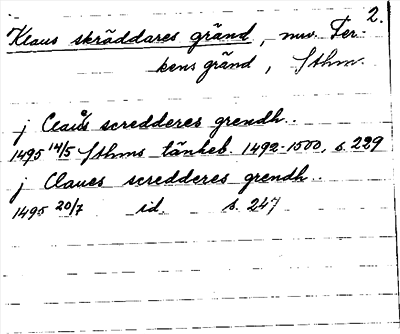 2.
Klaus skräddares gränd, nuv. Fer-
kens gränd, Sthm.
j Claůs scredderes grendh..
1495 14/5 Sthms tänkeb. 1492-1500, s. 229
j Claues scredderes grendh..
1495 20/7 id. s. 247